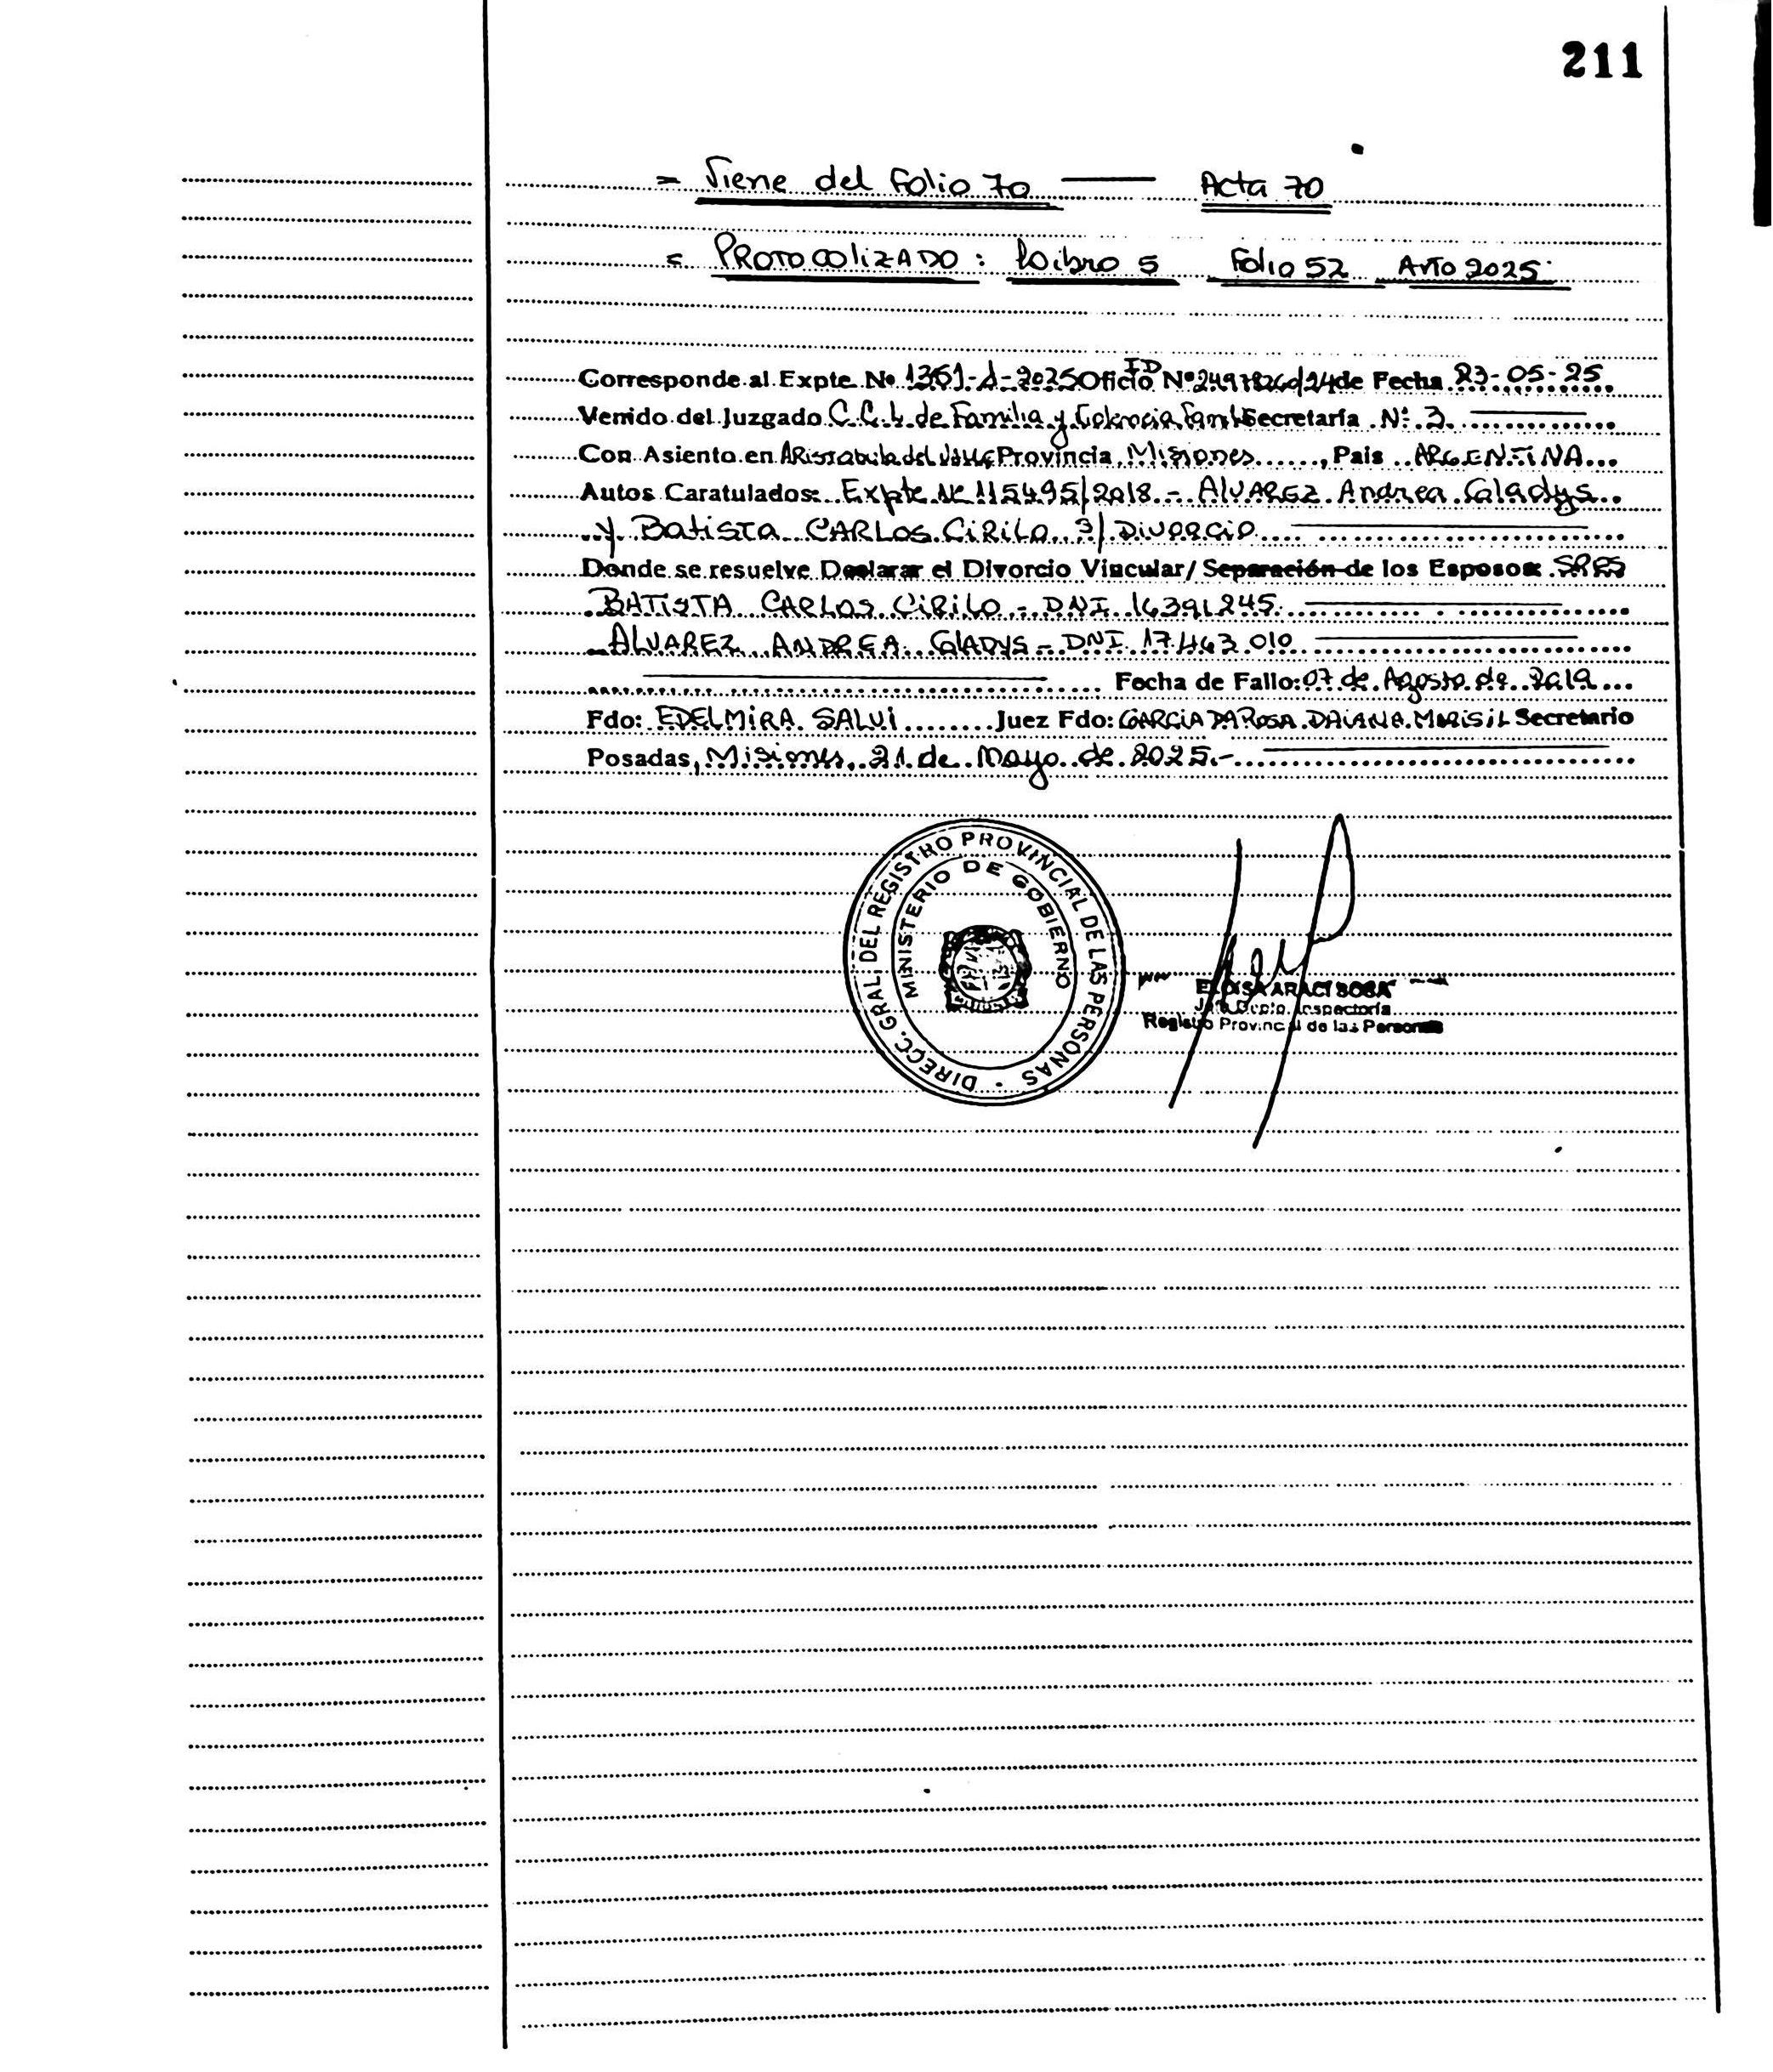 211
= Viene del Folio 70 —— Acta 70
= PROTOCOLIZADO: Libro 5 Folio 52 Año 2025
Corresponde al Expte Nº 1361-A-2025 Oficio ID Nº 24978260/24 de Fecha 23-05-25
Venido del Juzgado C.C.L. de Familia y Violencia Fami. Secretaría Nº 3
Con Asiento en Aristobulo del Valle Provincia Misiones, Pais ARGENTINA
Autos Caratulados: Expte Nº 115495/2018 - ALVAREZ Andrea Gladys
y Batista CARLOS CIRILO S/ DIVORCIO
Donde se resuelve Declarar el Divorcio Vincular/ Separación de los Esposos SRES
BATISTA CARLOS CIRILO - DNI 16391245
ALVAREZ ANDREA GLADYS - DNI 17.463.010
Fecha de Fallo: 07 de Agosto de 2019
Fdo: EDELMIRA SALVI Juez Fdo: GARCIA DA ROSA DAIANA MARISIL Secretario
Posadas, Misiones, 21 de Mayo de 2025.-
DIRECC. GRAL. DEL REGISTRO PROVINCIAL DE LAS PERSONAS
MINISTERIO DE GOBIERNO
ELOISA ARACI SOSA
Jefa Depto. Inspectoría
Registro Provincial de las Personas